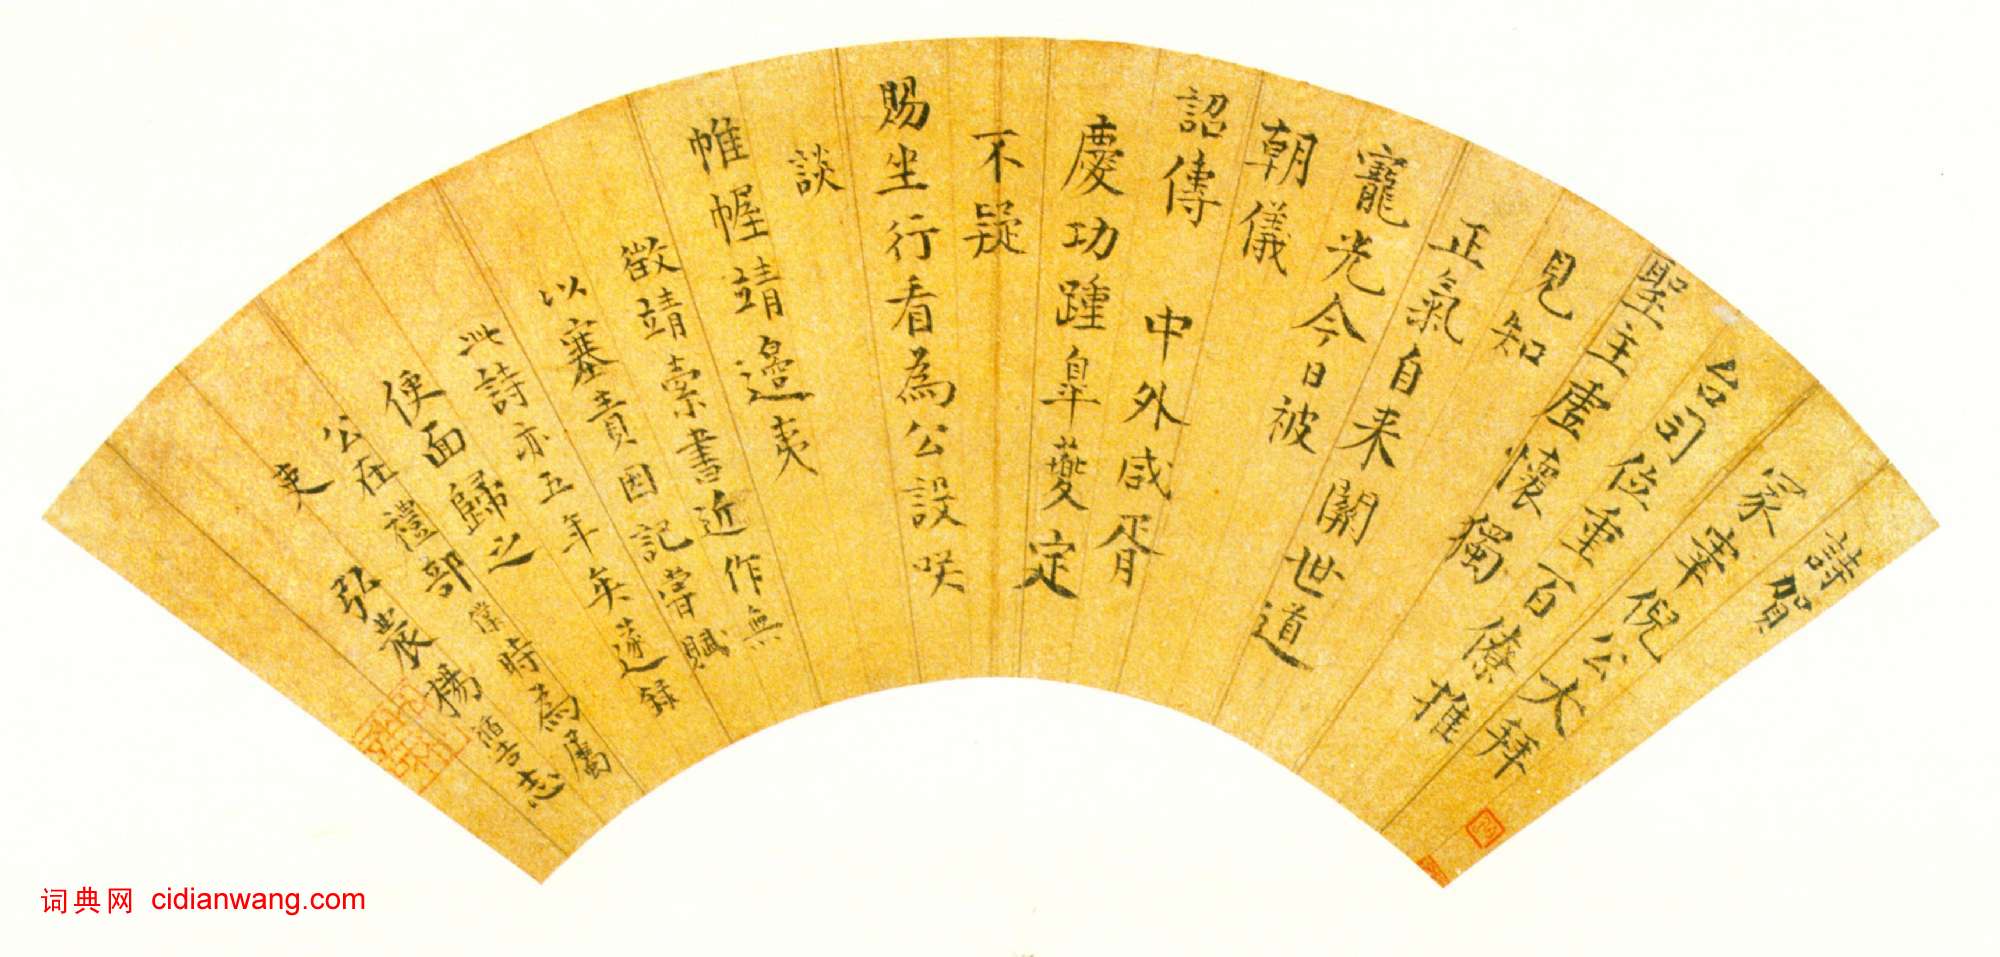 詩賀
冢宰倪公大拜
台司位重百僚推
聖主虛懷獨
見知
正氣自来關世道
寵光今日被
朝儀
詔傳
中外咸胥
慶功踵皐夔定
不疑
賜坐行看為公設咲
談
帷幄靖邊夷
徵靖索書近作無
以塞責因記嘗賦
此詩亦五年矣遂録
便面歸之
公在禮部時為屬
吏
弘農楊循吉志
词典网 cidianwang.com